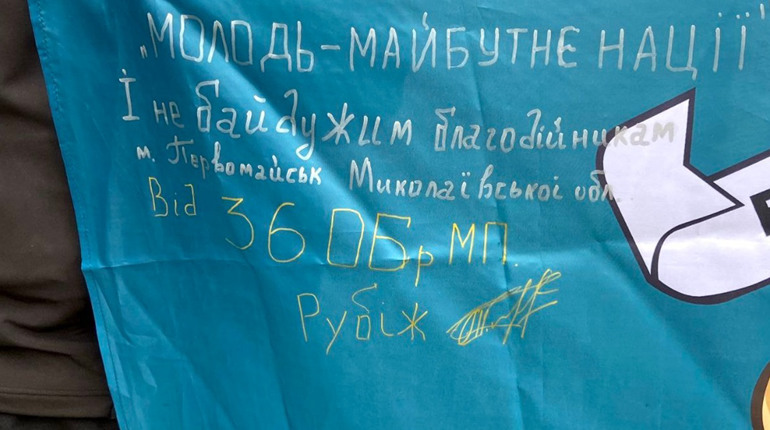 „МОЛОДЬ-МАЙБУТНЄ НАЦІЇ"
І не байдужим благодійникам
м. Первомайськ Миколаївської обл.
Від 36 ОБрМП.
Рубіж